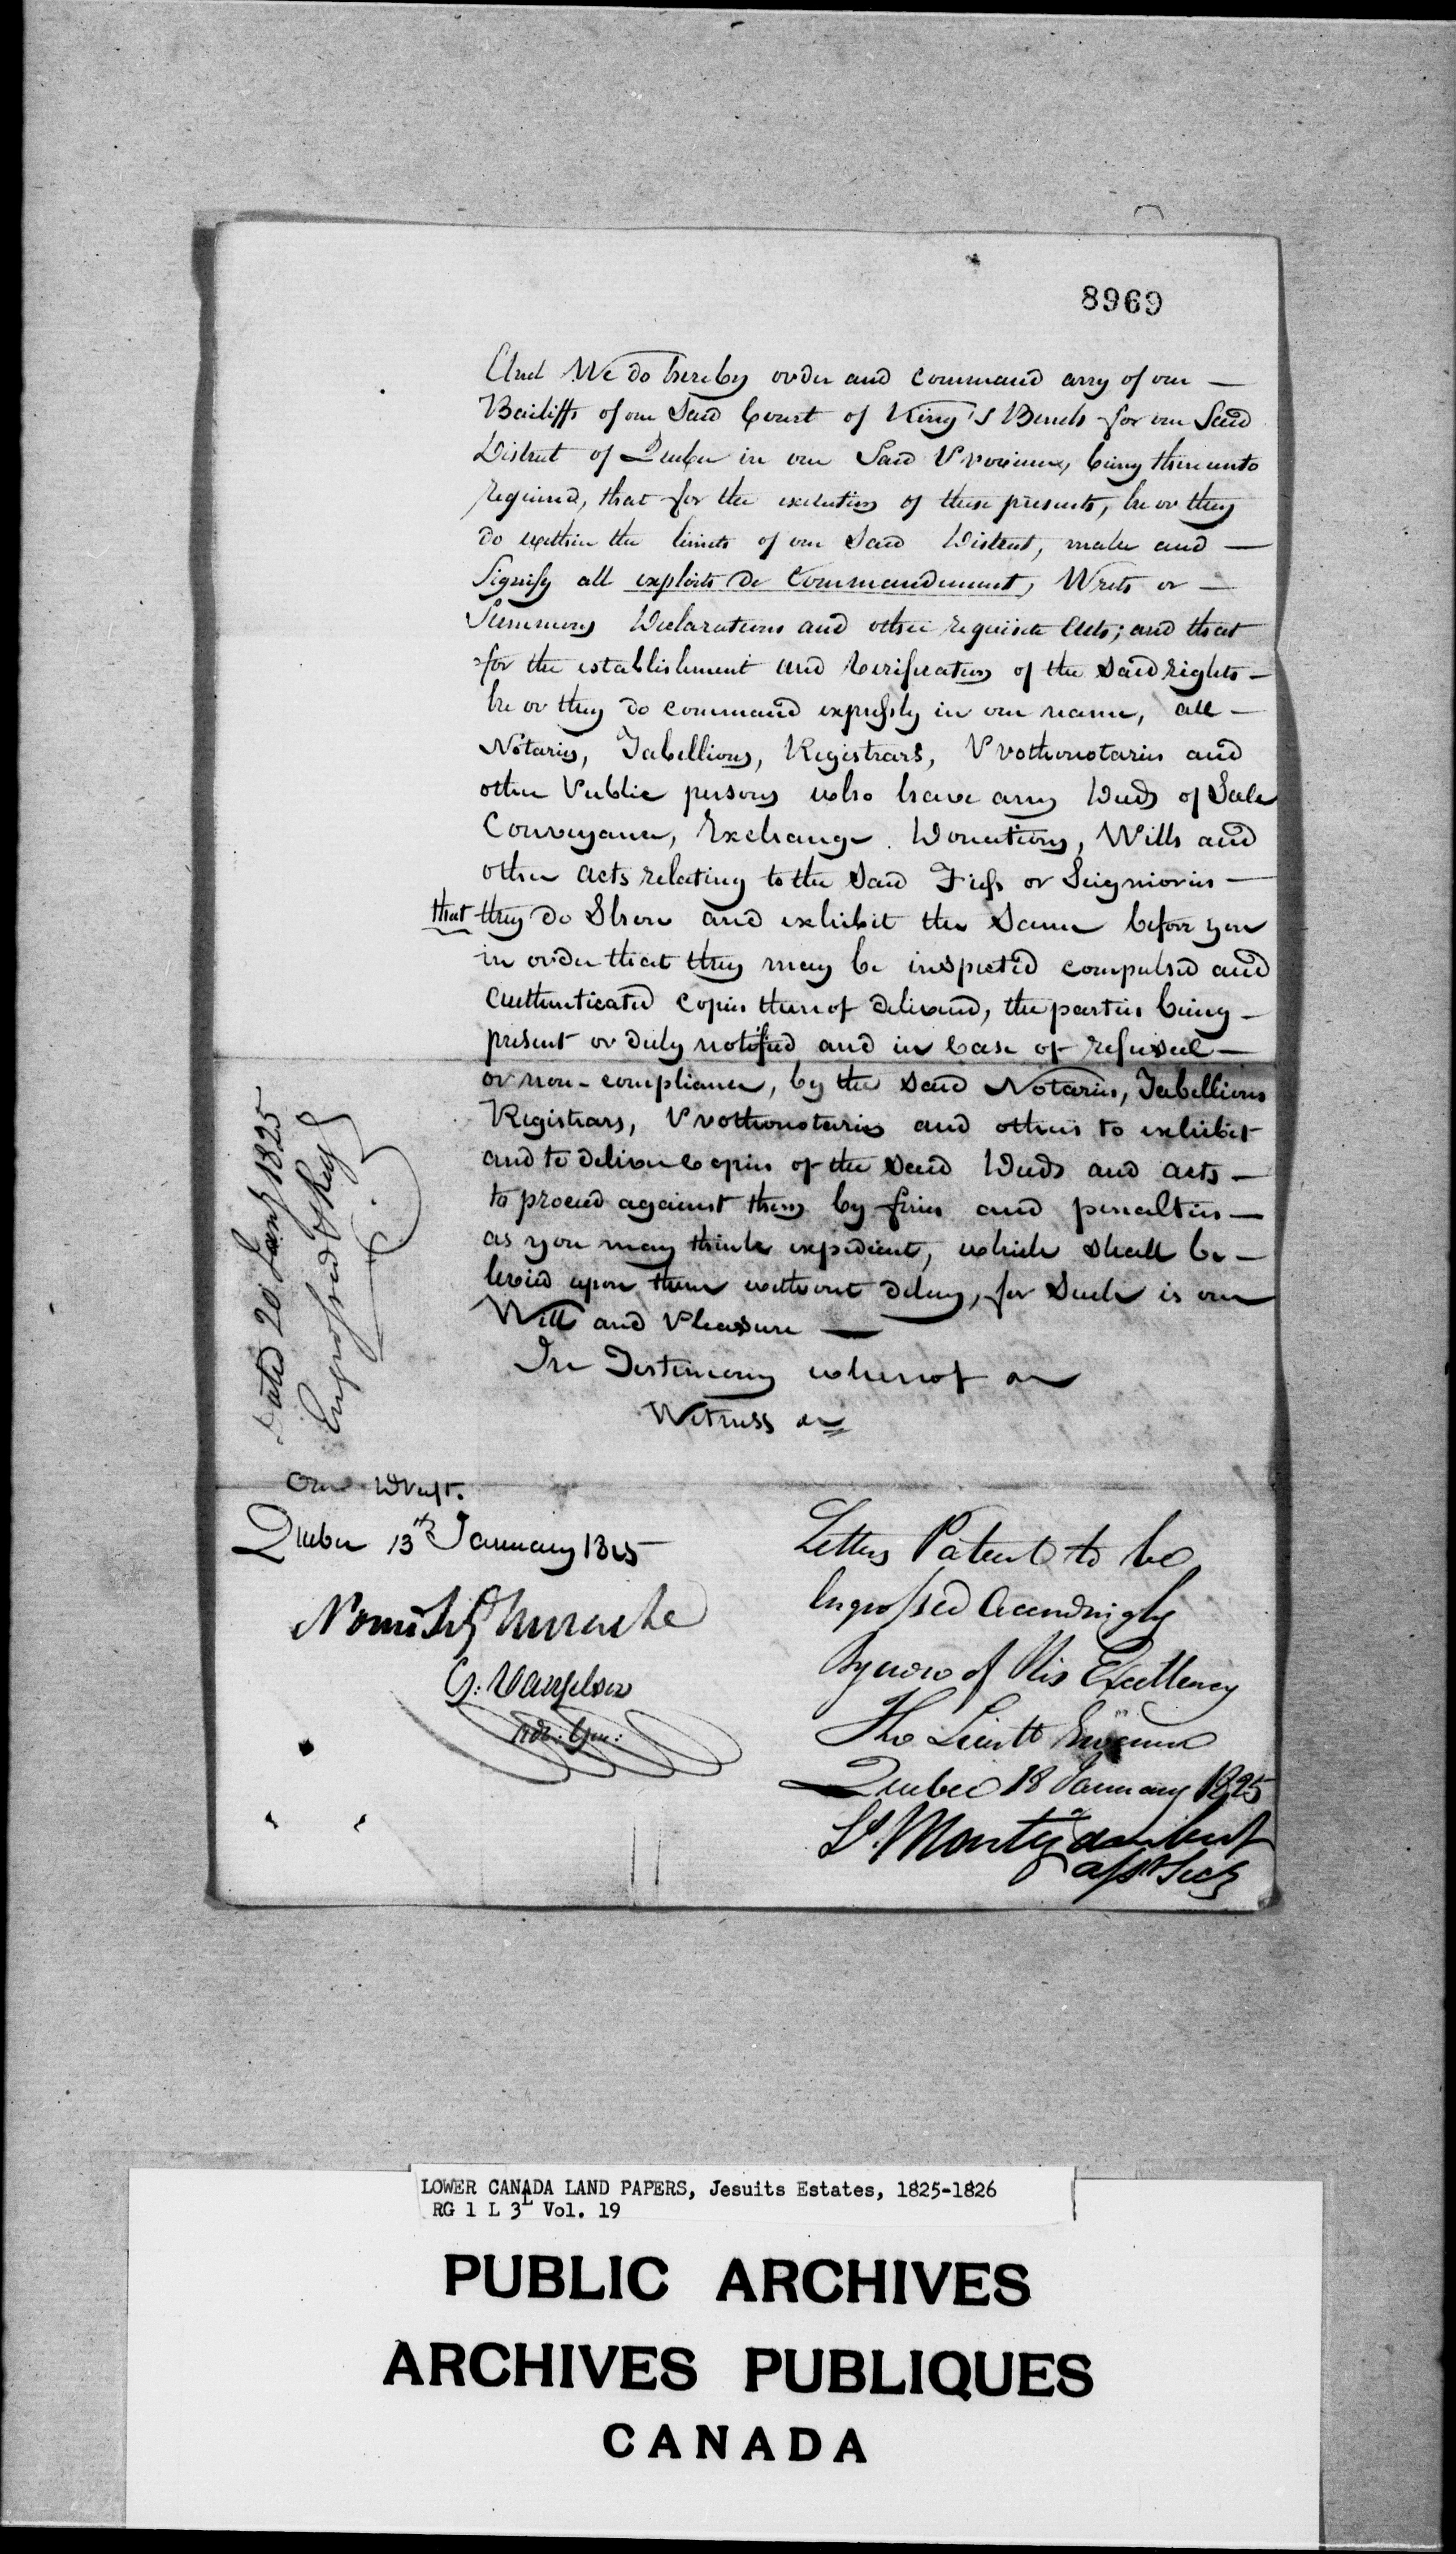 8969
And We do hereby order and command any of our —
Bailiffs of our Said Court of King's Bench for our Said
District of Quebec in our Said Province, being thereunto
required, that for the execution of these presents, he or they
do within the limits of our Said District, make and —
Signify all exploits de Commandement, Writs or —
Summons Declarations and other requisite Acts; and that
for the establishment and verification of the Said rights —
he or they do command expressly in our name, all —
Notaries, Tabellions, Registrars, Prothonotaries and
other Public persons who have any Deeds of Sale
Conveyance, Exchange. Donations, Wills and
other acts relating to the Said Fiefs or Seigniories —
that they do Shew and exhibit the Same before you
in order that they may be inspected compulsed and
authenticated copies thereof delivered, the parties being —
present or duly notified and in Case of refusal —
or non-compliance, by the Said Notaries, Tabellions
Registrars, Prothonotaries and others to exhibit
and to deliver Copies of the Said Deeds and acts —
to proceed against them by fines and penalties —
as you may think expedient, which shall be —
levied upon them without delay, for Such is our
Will and Pleasure —
In Testimony whereof
Witness
Dated 20 Jany 1825
Engrossed
Our Draft.
Quebec 13th January 1825
G: Vanfelson
Adv: Gen:
Letters Patent to be
Engrossed Accordingly
By order of His Excellency
The Lieutt Governor
Quebec 18 January 1825
Ls. Montizambert
asst Secy
LOWER CANADA LAND PAPERS, Jesuits Estates, 1825-1826
RG 1 L 3L Vol. 19
PUBLIC ARCHIVES
ARCHIVES PUBLIQUES
CANADA